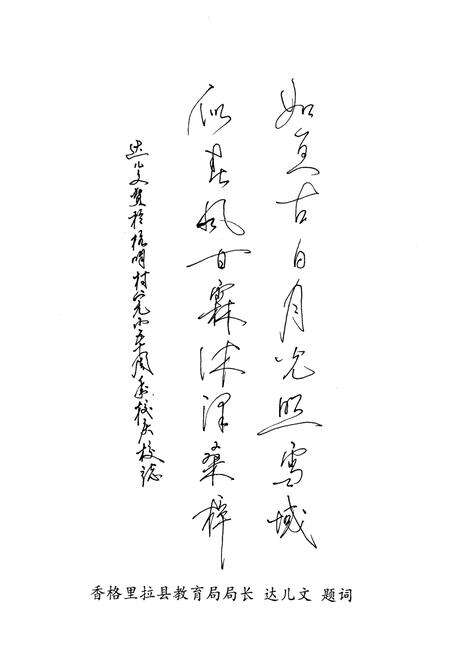 如亘古日月光照雪域
似春风甘霖沐泽桑梓
达儿文贺於明村完小五十周年校庆校志
香格里拉县教育局局长 达儿文 题词